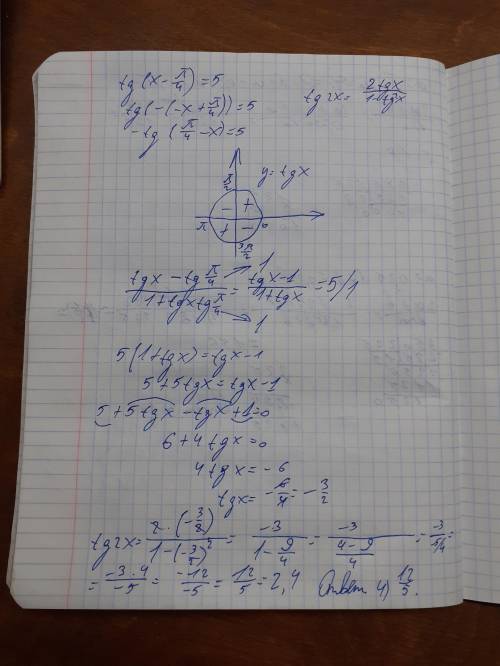 tg(x-π/4)=5
tg(-(-x+π/4))=5
-tg(π/4-x)=5
tg2x= 2tgx/1-tg²x
y=tgx
π/2
- +
π 0
+ -
3π/2
tgx-tgπ/4 / 1+tgxtgπ/4 = tgx-1 / 1+tgx = 5/1
1
1
5(1+tgx)=tgx-1
5+5tgx=tgx-1
5+5tgx-tgx+1=0
6+4tgx=0
4tgx=-6
tgx= -6/4= -3/2
tg2x= 2·(-3/2) / 1-(-3/2)² = -3 / 1-9/4 = -3 / 4-9/4 = -3 / -5/4 =
= -3·4 / -5 = -12/-5 = 12/5 = 2,4 Ответ 4) 12/5.